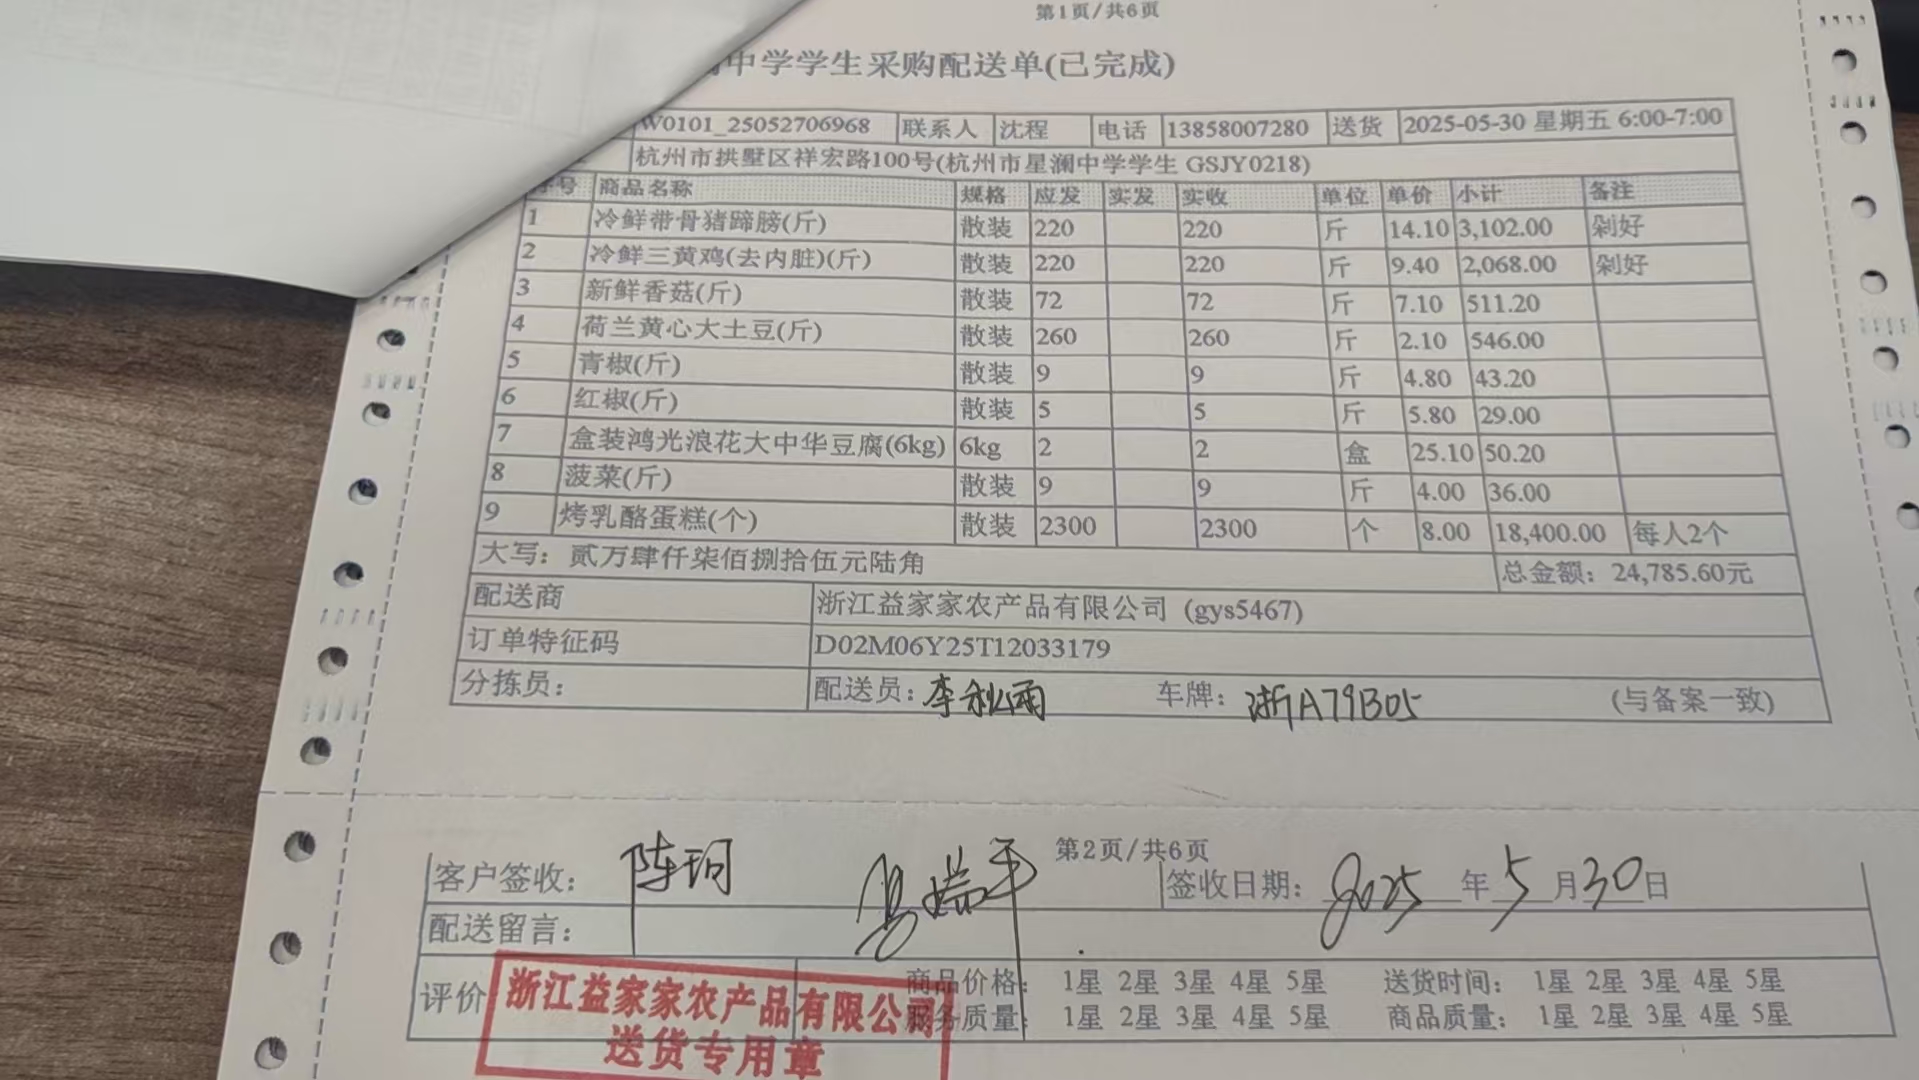 第1页/共6页
中学学生采购配送单(已完成)
W0101_25052706968 联系人 沈程 电话 13858007280 送货 2025-05-30 星期五 6:00-7:00
杭州市拱墅区祥宏路100号(杭州市星澜中学学生 GSJY0218)
序号 商品名称 规格 应发 实发 实收 单位 单价 小计 备注
1 冷鲜带骨猪蹄膀(斤) 散装 220 220 斤 14.10 3,102.00 剁好
2 冷鲜三黄鸡(去内脏)(斤) 散装 220 220 斤 9.40 2,068.00 剁好
3 新鲜香菇(斤) 散装 72 72 斤 7.10 511.20
4 荷兰黄心大土豆(斤) 散装 260 260 斤 2.10 546.00
5 青椒(斤) 散装 9 9 斤 4.80 43.20
6 红椒(斤) 散装 5 5 斤 5.80 29.00
7 盒装鸿光浪花大中华豆腐(6kg) 6kg 2 2 盒 25.10 50.20
8 菠菜(斤) 散装 9 9 斤 4.00 36.00
9 烤乳酪蛋糕(个) 散装 2300 2300 个 8.00 18,400.00 每人2个
大写：贰万肆仟柒佰捌拾伍元陆角 总金额：24,785.60元
配送商 浙江益家家农产品有限公司 (gys5467)
订单特征码 D02M06Y25T12033179
分拣员： 配送员：李秋雨 车牌：浙A79B05 (与备案一致)
第2页/共6页
客户签收：陈珂 签收日期：2025年5月30日
配送留言：
评价 商品价格： 1星 2星 3星 4星 5星 送货时间： 1星 2星 3星 4星 5星
服务质量： 1星 2星 3星 4星 5星 商品质量： 1星 2星 3星 4星 5星
浙江益家家农产品有限公司
送货专用章